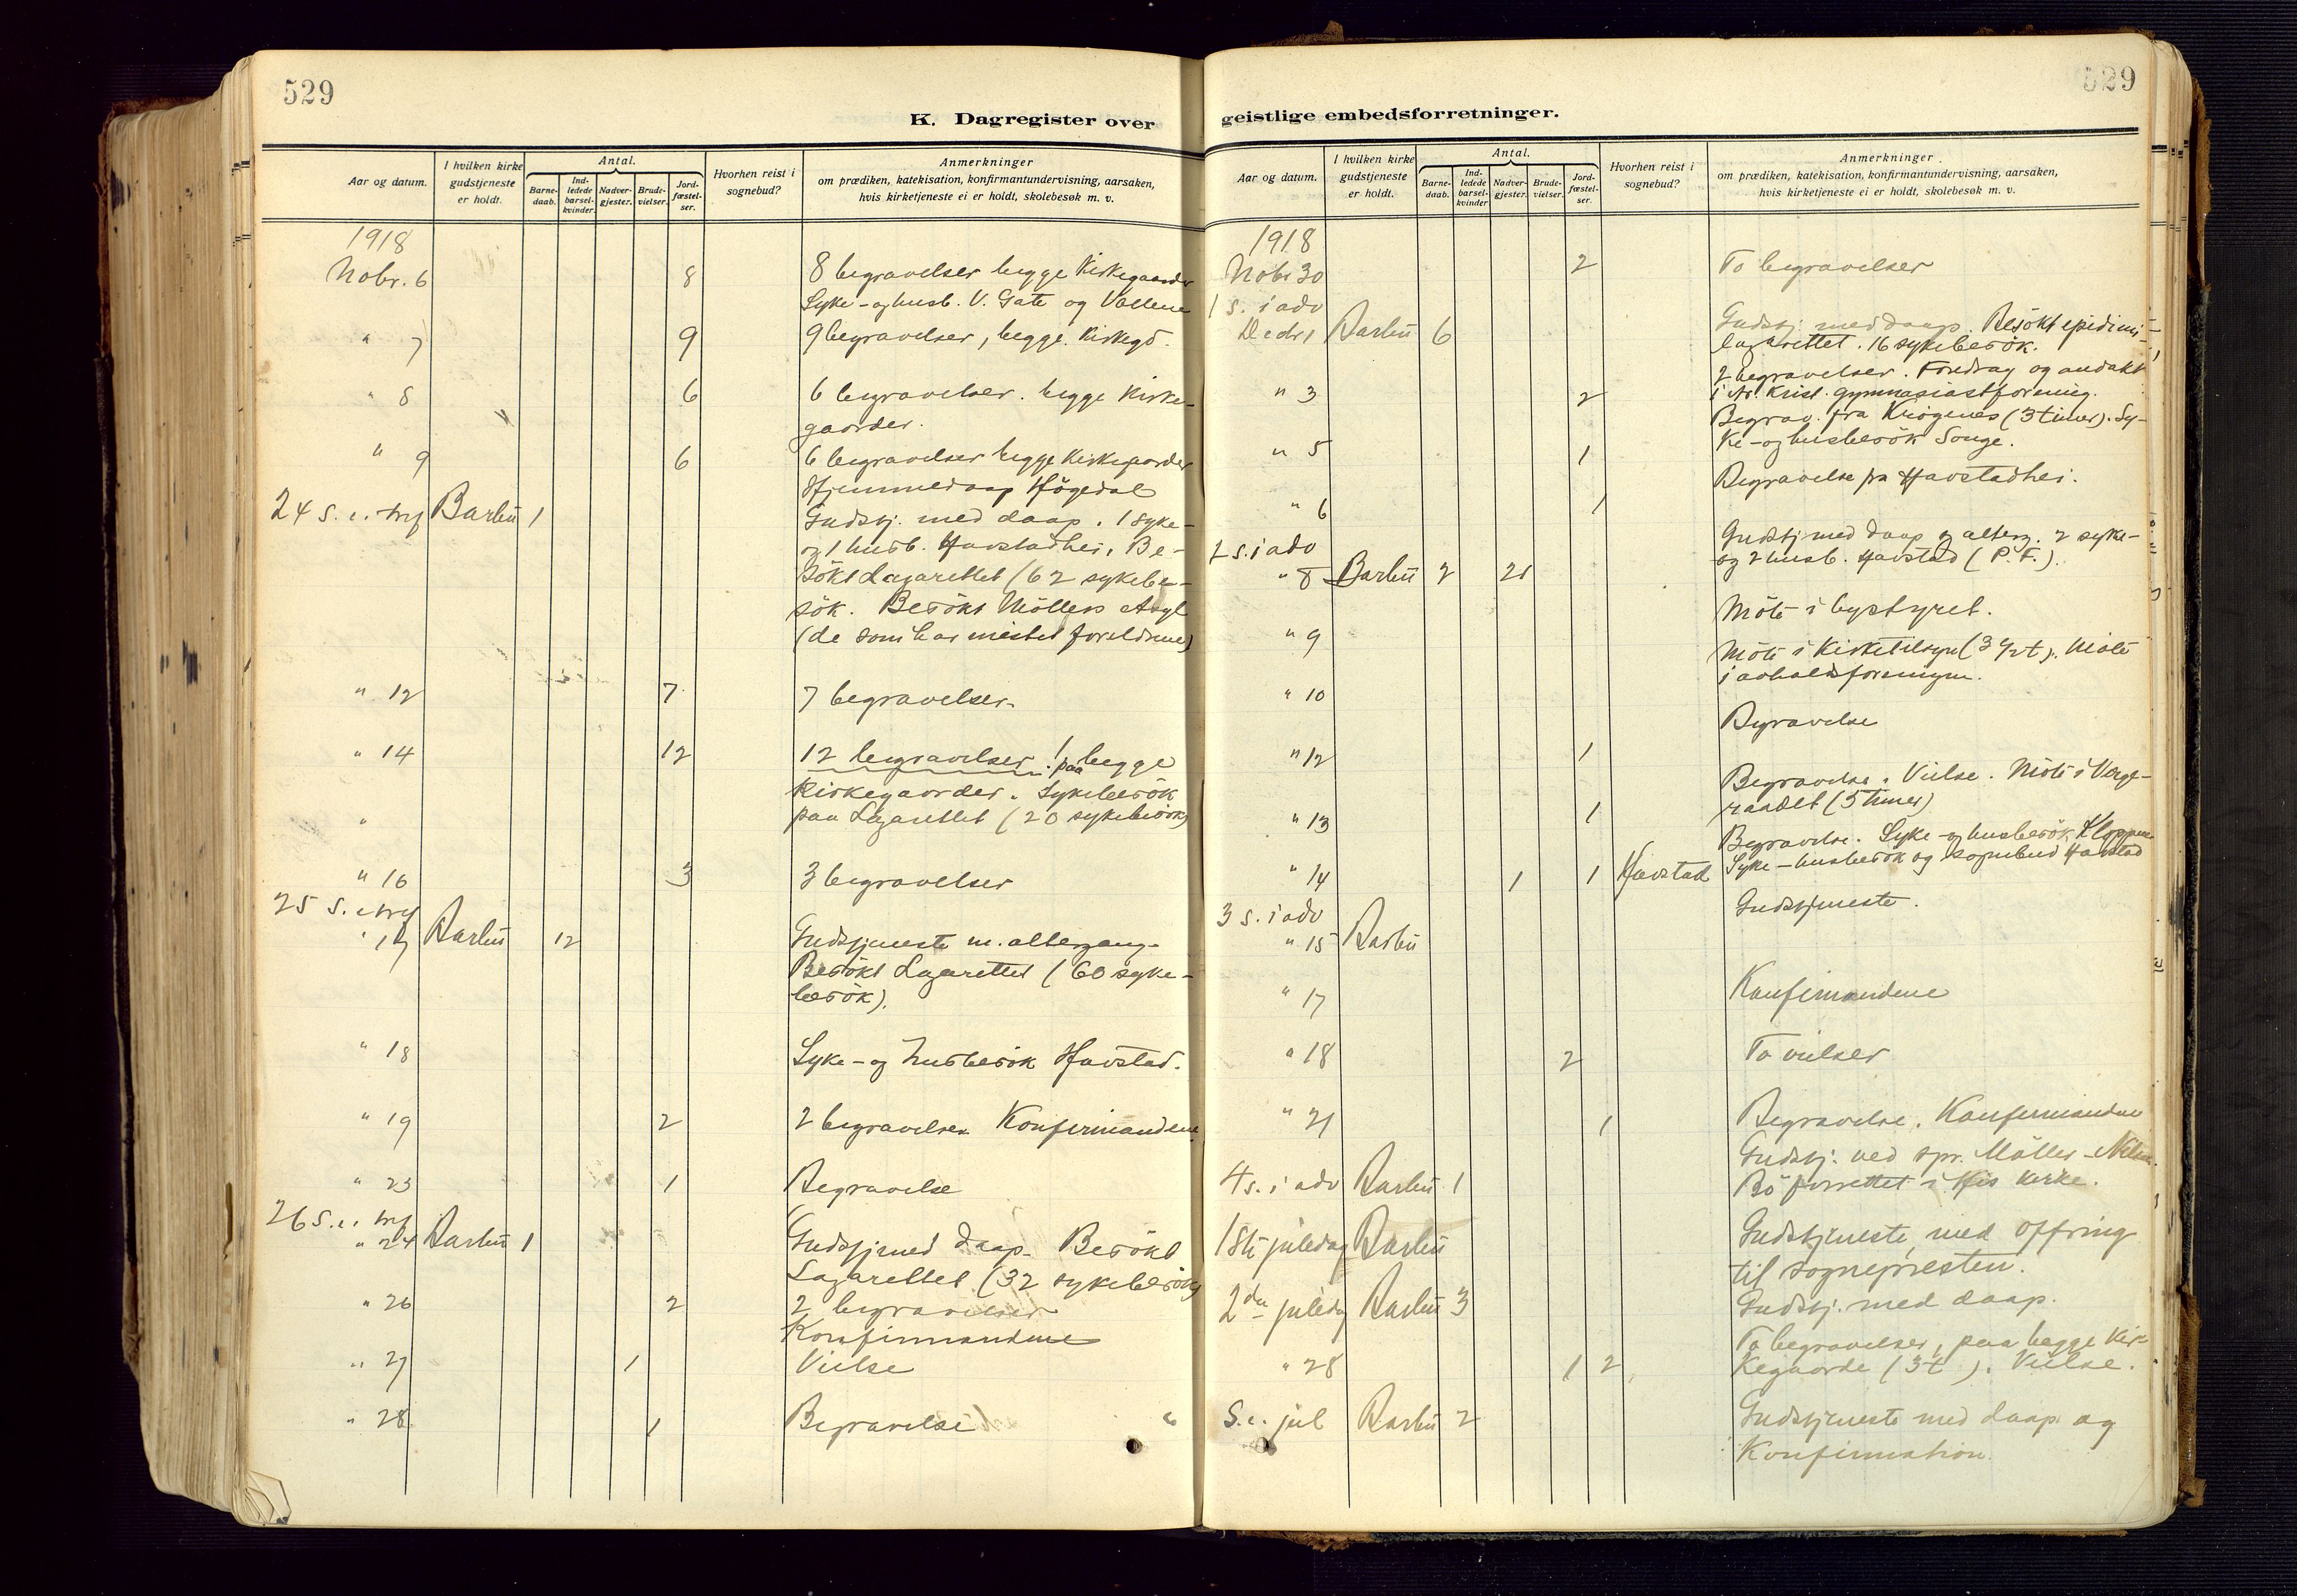 529
K. Dagregister over
Aar og datum.
I hvilken kirke gudstjeneste er holdt.
Antal.
Barne-daab.
Ind-ledede barsel-kvinder.
Nadver-gjester.
Brude-vielser.
Jord-fæstel-ser.
Hvorhen reist i sognebud?
Anmerkninger
om prædiken, katekisation, konfirmantundervisning, aarsaken,
hvis kirketjeneste ei er holdt, skolebesøk m. v.
1918
Nobr. 6 8 8 begravelser begge Kirkegaarder
Syke- og husb. V. Gate og Vollene
" 7 9 9 begravelser, begge Kirkegd.
" 8 6 6 begravelser. begge Kirke-
gaarder.
" 9 6 6 begravelser begge Kirkegaarder
Hjemmedaap Högedal
24 S. e. tref Barbu 1 Gudstj. med daap. 1 syke-
og 1 husb. Havstadhei. Be-
sökt Lazarettet (62 sykebe-
sök. Besökt Möllers Asyl
(de som har mistet foreldrene)
" 12 7 7 begravelser.
" 14 12 12 begravelser! paa begge
Kirkegaarder. Sykebesök
paa Lazarettet (20 sykebesök)
"
" 16 3 3 begravelser
25 S. e. tref
" 17 Barbu 12 Gudstjeneste m. altergang.
Besökt Lazarettet (60 syke-
besök).
" 18 Syke- og husbesök Havstad.
" 19 2 2 begravelser Konfirmandene
" 23 1 Begravelse
26 S. e. tref
" 24 Barbu 1 Gudstj med daap. Besökt
Lazarettet (32 sykebesök)
" 26 2 2 begravelser
Konfirmandene
" 27 1 Vielse
" 28 1 Begravelse "
529
geistlige embedsforretninger.
Aar og datum.
I hvilken kirke gudstjeneste er holdt.
Antal.
Barne-daab.
Ind-ledede barsel-kvinder
Nadver-gjester.
Brude-vielser.
Jord-fæstel-ser.
Hvorhen reist i sognebud?
Anmerkninger
om prædiken, katekisation, konfirmantundervisning, aarsaken,
hvis kirketjeneste ei er holdt, skolebesøk m. v.
1918
Nobr 30 2 To begravelser
1 S. i adv
Decbr 1 Barbu 6 Gudstj. med daap. Besökt epidimi-
lazarettet. 16 sykebesök.
" 3 2 2 begravelser. Foredrag og andakt
i Ar. Krist. gymnasiastforening.
" 5 1 Begrav. fra Krögenes (3 timer). Sy-
ke- og husbesök Songe.
" 6 1 Begravelse fra Havstadhei.
2 S. i adv
" 8 Barbu 2 21 Gudstj med daap og alterg. 2 syke-
og 2 husb. Havstad (P. F.).
" 9 Möte i bystyret.
" 10 Möte i Kirketilsyn (3 1/2 t). Möte
i avholdsforeningen.
" 12 1 Begravelse
" 13 1 Begravelse. Vielse. Möte i Verge-
raadet (5 timer)
" 14 1 1 Havstad Begravelse. Syke- og husbesök Kloppene
Syke- husbesök og sognebud Havstad
3 S. i adv
" 15 Barbu Gudstjeneste.
" 17 Konfirmandene
" 18 2 To vielser
" 21 1 Begravelse. Konfirmandene
4 S. i adv Barbu 1 Gudstj. ved spr. Möller-Nilsen.
Bö forrettet i His Kirke.
1ste juledag Barbu Gudstjeneste med offring
til sognepresten.
2den juledag Barbu 3 Gudstj. med daap.
" 28 1 2 To begravelser, paa begge Kir-
kegaarde (3 t). Vielse.
S. e. jul Barbu 2 Gudstjeneste med daap og
Konfirmation.